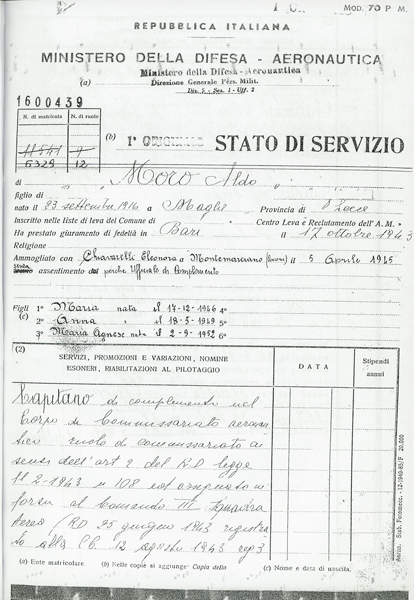 MOD. 70 P M.
REPUBBLICA ITALIANA
MINISTERO DELLA DIFESA - AERONAUTICA
Ministero della Difesa-Aeronautica
(a) Direzione Generale Pers. Milit.
Div. 5 - Sez. 1 - Uff. 2
1600439
N. di matricola N. di ruolo
6329 12
(b) 1° ORIGINALE STATO DI SERVIZIO
di Moro Aldo
figlio di
nato il 23 settembre 1916 a Maglie Provincia di Lecce
Inscritto nelle liste di leva del Comune di Centro Leva e Reclutamento dell'A.M.
Ha prestato giuramento di fedeltà in Bari il 17 ottobre 1943
Religione
Ammogliato con Chiavarelli Eleonora a Montemarciano (Ancona) il 5 Aprile 1945
assentimento perché Ufficiale di Complemento
Figli 1° Maria nata il 17-12-1946 4°
(c) 2° Anna il 18-5-1949 5°
3° Maria Agnese nata il 2-9-1952 6°
(2)
SERVIZI, PROMOZIONI E VARIAZIONI, NOMINE
ESONERI, RIABILITAZIONI AL PILOTAGGIO
DATA
Stipendi
annui
Capitano di complemento nel
Corpo di Commissariato aeronau
tico ruolo di commissariato ai
sensi dell'art 2 del R.D. legge
11-2-1943 n 108 ed assegnato in
forza al Comando III Squadra
Aerea (RD 25 giugno 1943 registra
to alla C.C. 12 agosto 1943 reg 3
(a) Ente matricolare. (b) Nelle copie si aggiunge Copia dello (c) Nome e data di nascita.